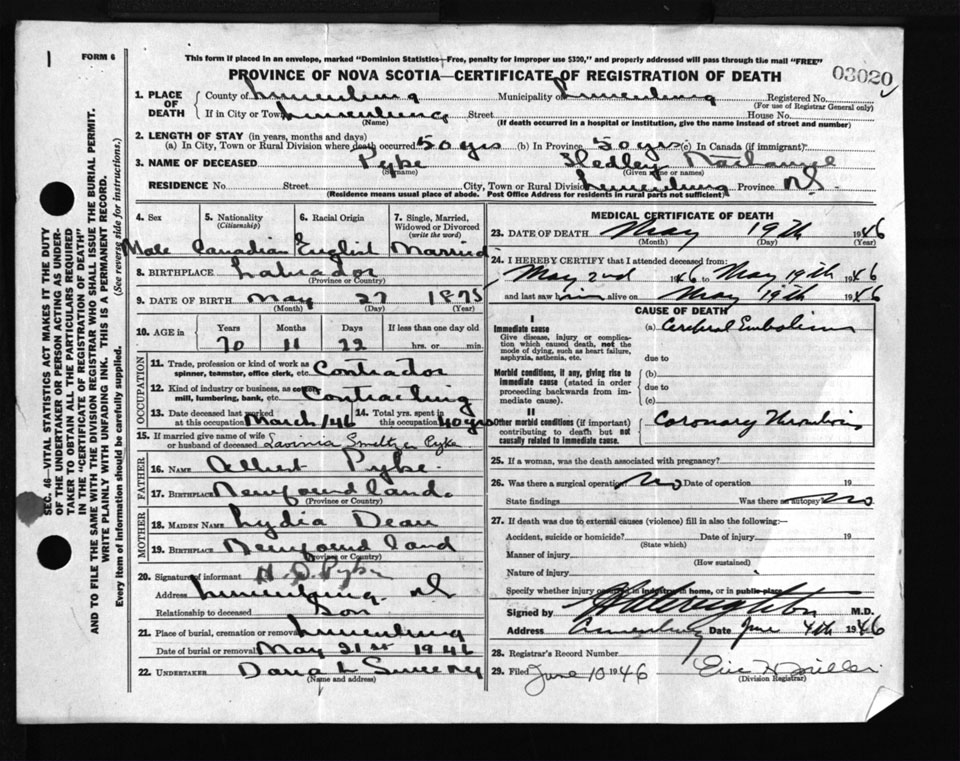 1
FORM 6
This form if placed in an envelope, marked "Dominion Statistics—Free, penalty for improper use $300," and properly addressed will pass through the mail "FREE"
PROVINCE OF NOVA SCOTIA—CERTIFICATE OF REGISTRATION OF DEATH
03020
SEC. 46—VITAL STATISTICS ACT MAKES IT THE DUTY
OF THE UNDERTAKER OR PERSON ACTING AS UNDER-
TAKER TO OBTAIN ALL THE PARTICULARS REQUIRED
IN THE "CERTIFICATE OF REGISTRATION OF DEATH"
AND TO FILE THE SAME WITH THE DIVISION REGISTRAR WHO SHALL ISSUE THE BURIAL PERMIT.
WRITE PLAINLY WITH UNFADING INK. THIS IS A PERMANENT RECORD.
Every item of information should be carefully supplied. (See reverse side for instructions.)
1. PLACE OF DEATH
County of Lunenburg Municipality of Lunenburg Registered No.
(For use of Registrar General only)
If in City or Town Lunenburg Street House No.
(Name) (If death occurred in a hospital or institution, give the name instead of street and number)
2. LENGTH OF STAY (in years, months and days)
(a) In City, Town or Rural Division where death occurred 50 yrs (b) In Province 50 yrs (c) In Canada (if immigrant)
3. NAME OF DECEASED Pyke Hedley
(Surname) (Given name or names)
RESIDENCE No. Street City, Town or Rural Division Lunenburg Province NS
(Residence means usual place of abode. Post Office Address for residents in rural parts not sufficient)
4. Sex 5. Nationality (Citizenship) 6. Racial Origin 7. Single, Married, Widowed or Divorced (write the word)
Male Canadian English Married
8. BIRTHPLACE Labrador
(Province or Country)
9. DATE OF BIRTH May 27 1875
(Month) (Day) (Year)
10. AGE in Years Months Days If less than one day old
70 11 22 hrs. or min.
OCCUPATION
11. Trade, profession or kind of work as spinner, teamster, office clerk, etc. Contractor
12. Kind of industry or business, as cotton mill, lumbering, bank, etc. Contracting
13. Date deceased last worked at this occupation March/46 14. Total yrs. spent in this occupation 40 yrs
15. If married give name of wife or husband of deceased Lavinia Smeltzer Pyke
FATHER
16. NAME Albert Pyke
17. BIRTHPLACE Newfoundland
(Province or Country)
MOTHER
18. MAIDEN NAME Lydia Dean
19. BIRTHPLACE Newfoundland
(Province or Country)
20. Signature of informant H. D. Pyke
Address Lunenburg. NS
Relationship to deceased Son
21. Place of burial, cremation or removal Lunenburg
Date of burial or removal May 21st 1946
22. UNDERTAKER Sweeny
(Name and address)
MEDICAL CERTIFICATE OF DEATH
23. DATE OF DEATH May 19th 1946
(Month) (Day) (Year)
24. I HEREBY CERTIFY that I attended deceased from:
May 2nd 1946 to May 19th 1946
and last saw him alive on May 19th 1946
CAUSE OF DEATH
I
Immediate cause (a) Cerebral Embolism
Give disease, injury or complication which caused death, not the mode of dying, such as heart failure, asphyxia, asthenia, etc.
due to
Morbid conditions, if any, giving rise to immediate cause (stated in order proceeding backwards from immediate cause).
(b)
due to
(c)
II
Other morbid conditions (if important) contributing to death but not causally related to immediate cause.
Coronary Thrombosis
25. If a woman, was the death associated with pregnancy?
26. Was there a surgical operation No Date of operation 19
State findings Was there an autopsy No
27. If death was due to external causes (violence) fill in also the following:—
Accident, suicide or homicide? Date of injury 19
(State which)
Manner of injury
(How sustained)
Nature of injury
Specify whether injury occurred in industry, in home, or in public place
Signed by M.D.
Address Lunenburg Date June 4th 1946
28. Registrar's Record Number
29. Filed June 10 1946
(Division Registrar)